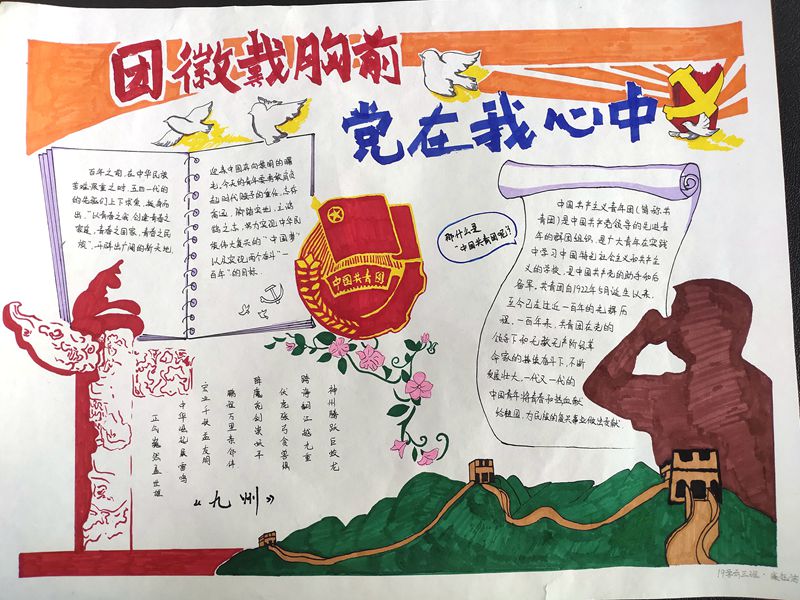 团徽戴胸前
党在我心中
百年之前,在中华民族
苦难深重之时,五四一代的
的先驱们上下求索,挺身而
出,"以青春之我 创造青春之
家庭,青春之国家,青春之民
族",斗拼出广阔的新天地
迎着中国奔向黎明的曙
光,今天的青年要勇敢肩负
起时代赋予的重任,志存
高远,脚踏实地,
努力实现中华民
族伟大复兴的"中国梦"
以及实现"两个奋斗"一
百年"的目标
中国共青团
那什么是
"中国共青团呢?
中国共产主义青年团(简称共
青团)是中国共产党领导的先进青
年的群团组织,是广大青年在实践
中学习中国特色社会主义和共产主
义的学校,是中国共产党的助手和后
备军,共青团自1922年5月诞生以来,
至今已走过近一百年的光辉历
程,一百年来,共青团在党的
领导下和无数无产阶级革
命家的接续奋斗下,不断
发展壮大,一代又一代的
中国青年将青春和热血献
给祖国,为民族的复兴事业做出贡献
神州腾跃巨蛟龙
鹏程万里
正向巍然盖世雄
《九州》